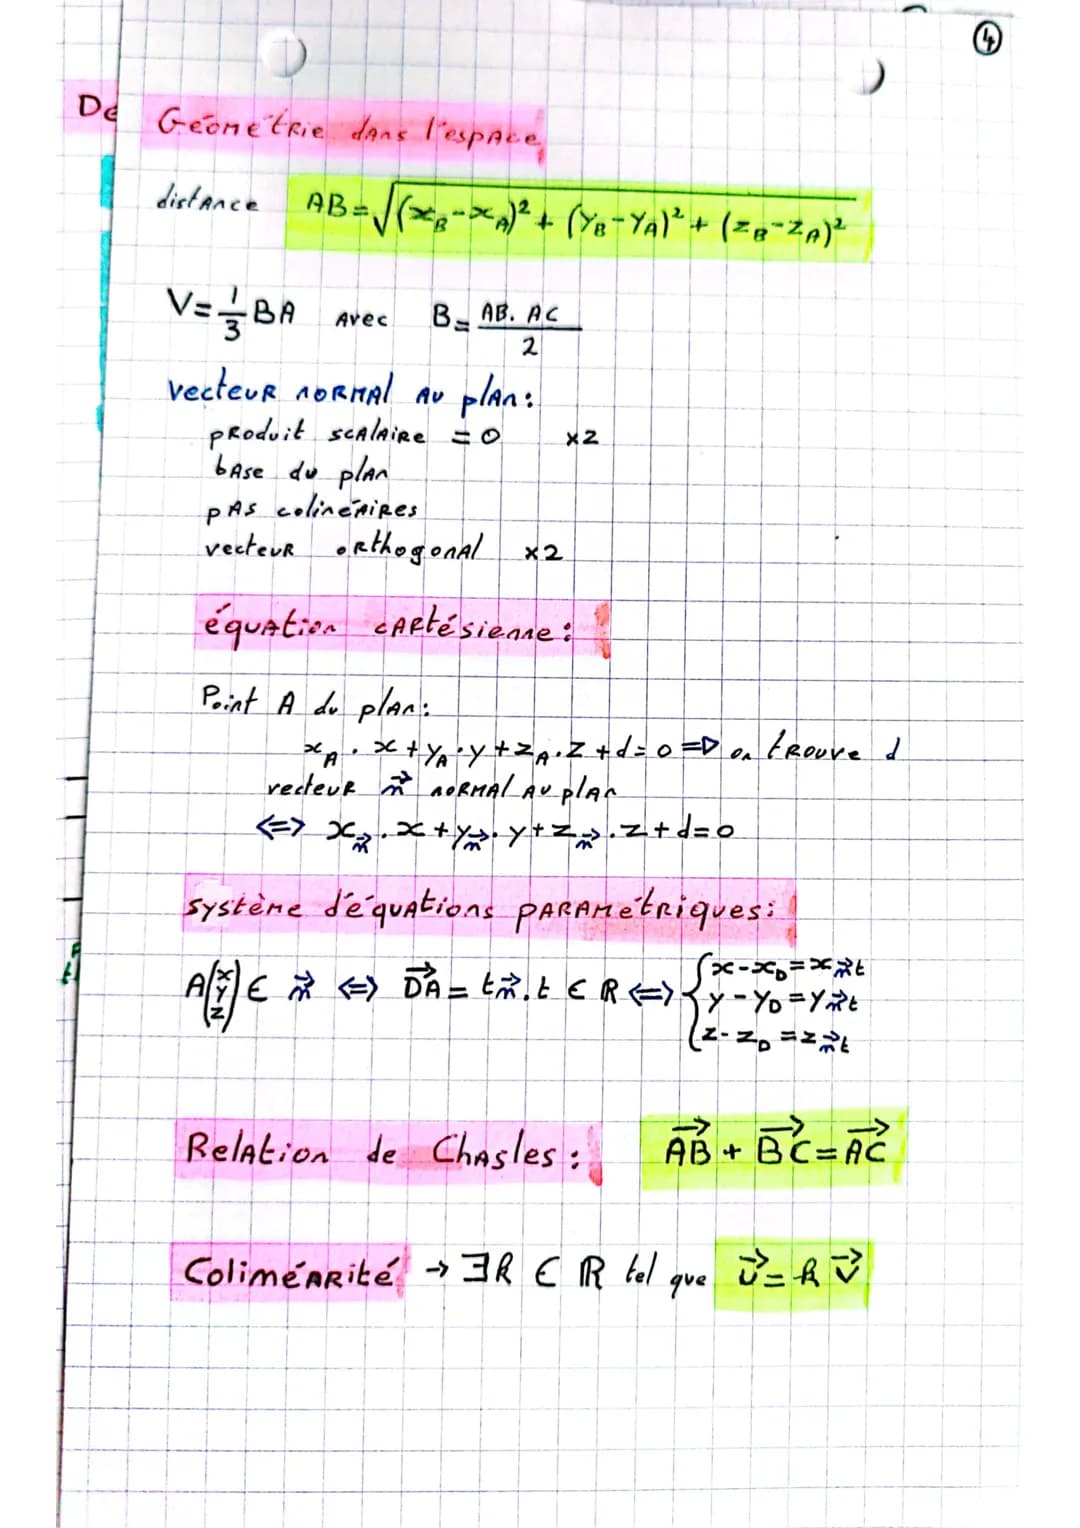 ④
De
Géométrie dans l'espace
distance AB = √(x_B - x_A)² + (y_B - y_A)² + (z_B - z_A)²
V = 1/3 BA avec B = AB. AC / 2
vecteur normal au plan :
produit scalaire = 0 x2
base du plan
pas colinéaires
vecteur orthogonal x2
équation cartésienne :
Point A du plan :
x_A . x + y_A . y + z_A . z + d = 0 => on trouve d
vecteur n⃗ normal au plan
<=> x_n⃗ . x + y_n⃗ . y + z_n⃗ . z + d = 0
système d'équations paramétriques :
A(x y z) ∈ n⃗ <=> DA⃗ = t n⃗, t ∈ R <=> { x - x_D = x_n⃗ t
y - y_D = y_n⃗ t
z - z_D = z_n⃗ t
Relation de Chasles : AB⃗ + BC⃗ = AC⃗
Colinéarité → ∃k ∈ ℝ tel que u⃗ = k v⃗